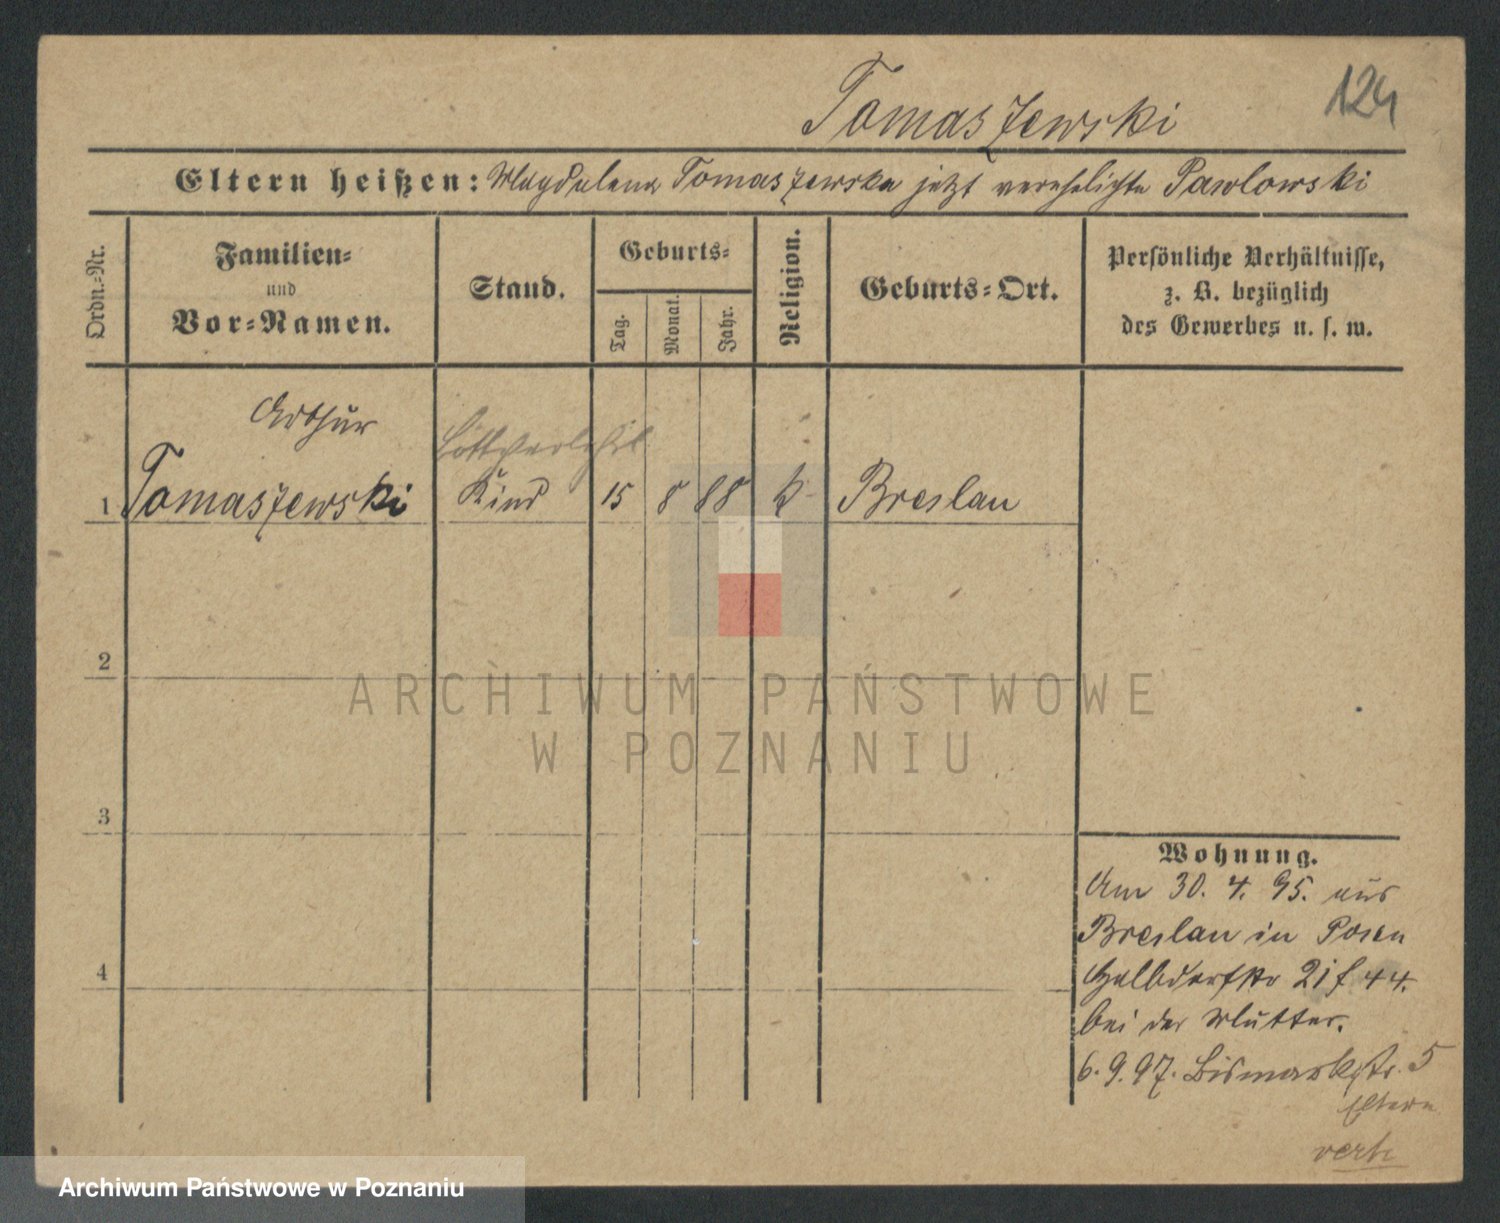 Tomaszewski
124
Eltern heißen: Magdalena Tomaszewska jetzt verehelichte Pawlowski
Ordn.-Nr.
Familien-
und
Vor-Namen.
Stand.
Geburts-
Tag.
Monat.
Jahr.
Religion.
Geburts-Ort.
Persönliche Verhältnisse,
z. B. bezüglich
des Gewerbes u. s. w.
Arthur
1 Tomaszewski Kind 15 8 88 k Breslau
2
3
4
Wohnung.
Am 30. 4. 95. aus
Breslau in Posen
Halbdorfstr 21 f 44.
bei der Mutter.
6. 9. 97. Bismarkstr. 5
Eltern
verh
ARCHIWUM PAŃSTWOWE
W POZNANIU
Archiwum Państwowe w Poznaniu